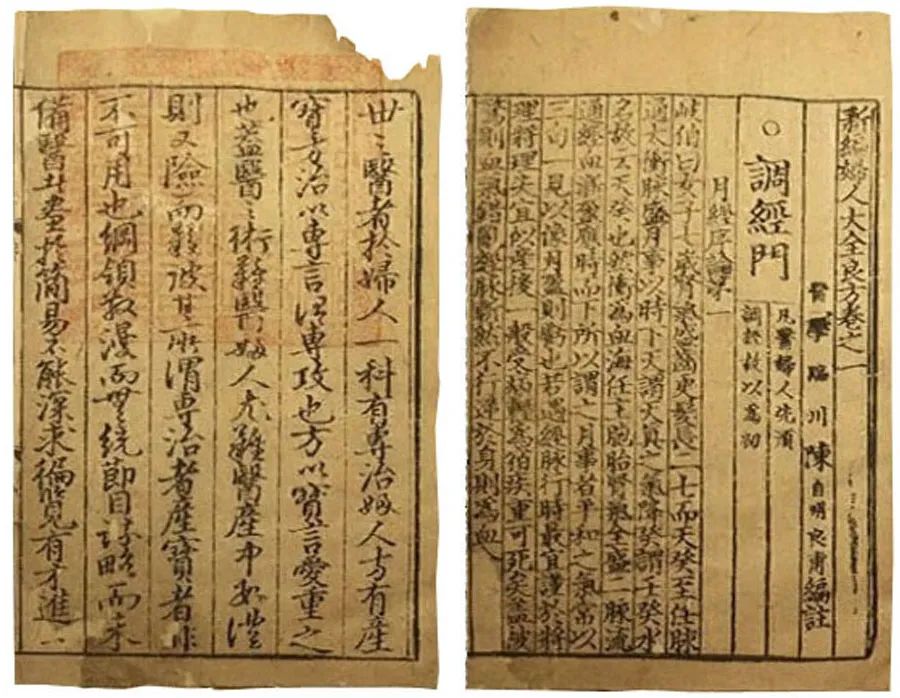 世之醫者於婦人一科有專治婦人方有産
寶方治以專言治專攻也方以寶言愛重之
也葢醫之術難醫婦人尤難醫産中數證
則又險而難彼其所謂專治者産寶者非
不可用也綱領散漫而無統節目詳略而未
備醫士盡於簡易不能深求徧覽有才進
新編婦人大全良方卷之一
醫學臨川陳自明良甫編註
○調經門
凡醫婦人先須
調經故以為初
月經序論第一
岐伯曰女子七歲腎氣盛齒更髮長二七而天癸至任脉
通太衝脉盛月事以時下天謂天真之氣降癸謂壬癸水
名故云天癸也然衝為血海任主胞胎腎氣全盛二脉流
通經血漸盈應時而下所以謂之月事者平和之氣常以
三旬一見以像月盈則虧也若遇經脉行時最宜謹於將
理將理失宜似產後一般受病輕為伯疾重可死矣盖被
驚則血氣錯亂經脉漸然不行逆於身則為血